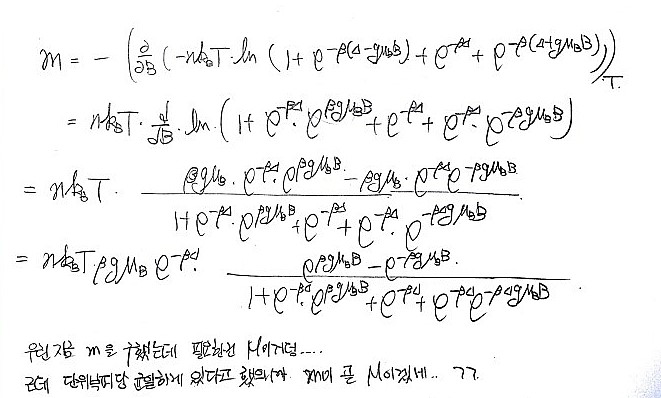 m = - (∂/∂B (-nk_BT·ln (1 + e^{-β(Δ-gμ_BB)} + e^{-βΔ} + e^{-β(Δ+gμ_BB)})))_T.
= nk_BT · d/dB · ln (1 + e^{-βΔ}·e^{βgμ_BB} + e^{-βΔ} + e^{-βΔ}·e^{-βgμ_BB})
= nk_BT · (βgμ_B·e^{-βΔ}e^{βgμ_BB} - βgμ_B·e^{-βΔ}e^{-βgμ_BB}) / (1 + e^{-βΔ}·e^{βgμ_BB} + e^{-βΔ} + e^{-βΔ}·e^{-βΔgμ_BB})
= nk_BTβgμ_B e^{-βΔ}· (e^{βgμ_BB} - e^{-βgμ_BB}) / (1 + e^{-βΔ}·e^{βgμ_BB} + e^{-βΔ} + e^{-βΔ}e^{-βΔgμ_BB}).
우린 지금 m을 구했는데 필요한건 M이거덩....
근데 단위부피당 균일하게 있다고 했으니까 m이 곧 M이겠네.. ㄱㄱ.